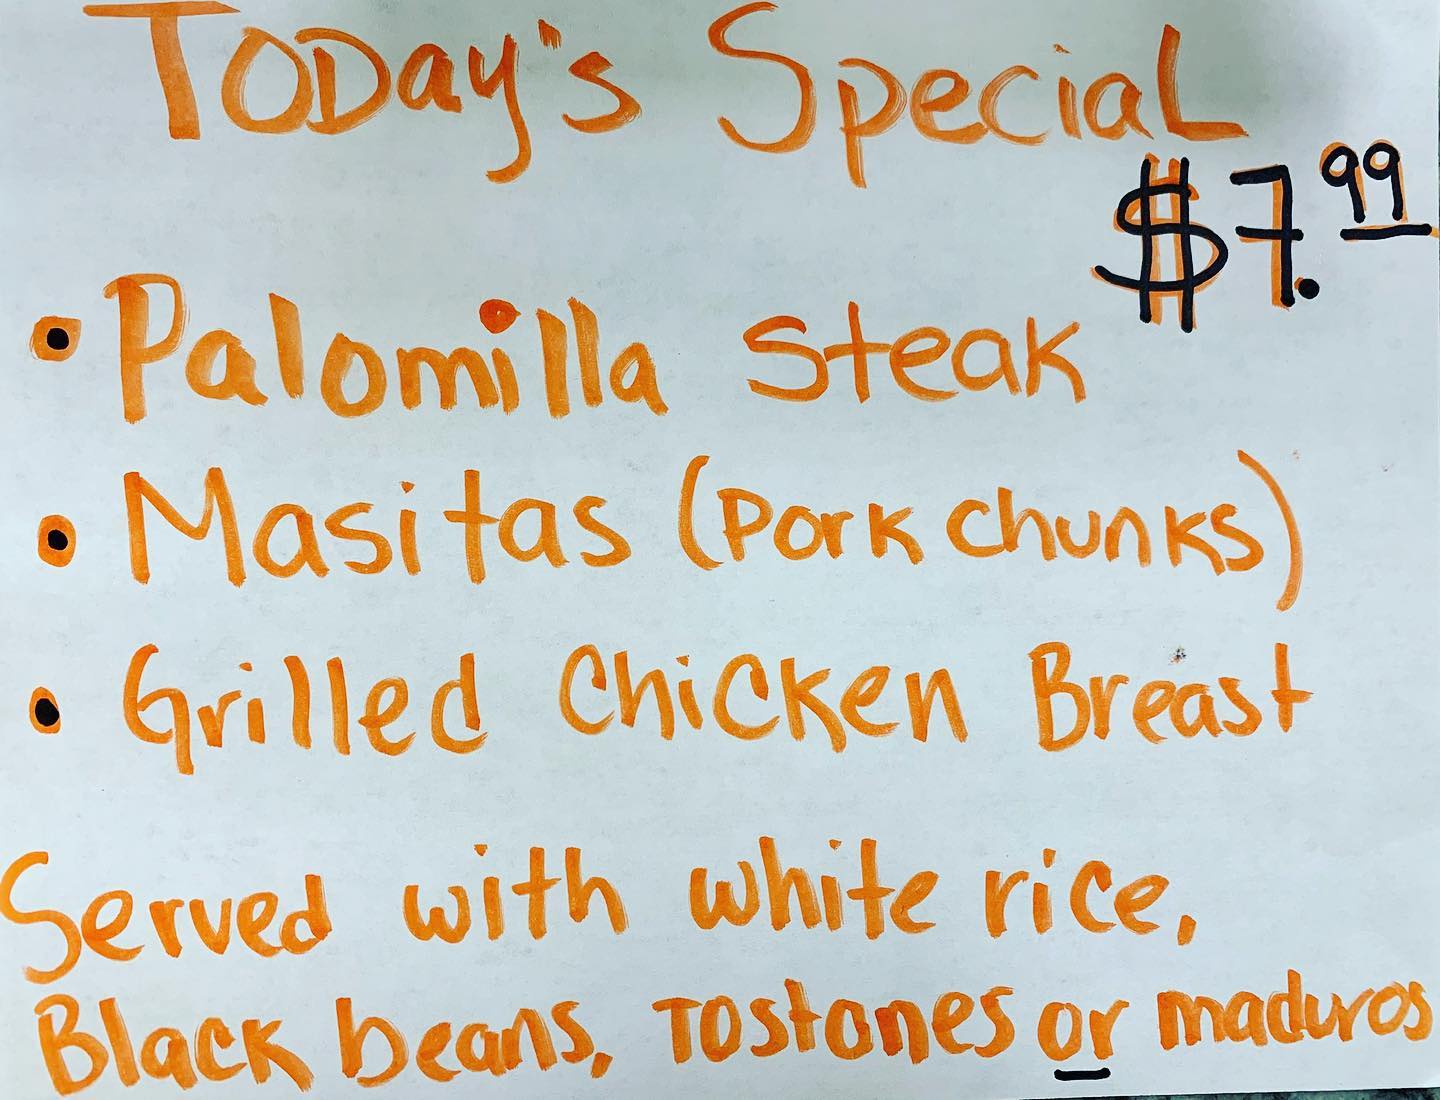 Today's Special
$7.99
• Palomilla Steak
• Masitas (Pork Chunks)
• Grilled Chicken Breast
Served with white rice,
Black beans, Tostones or maduros